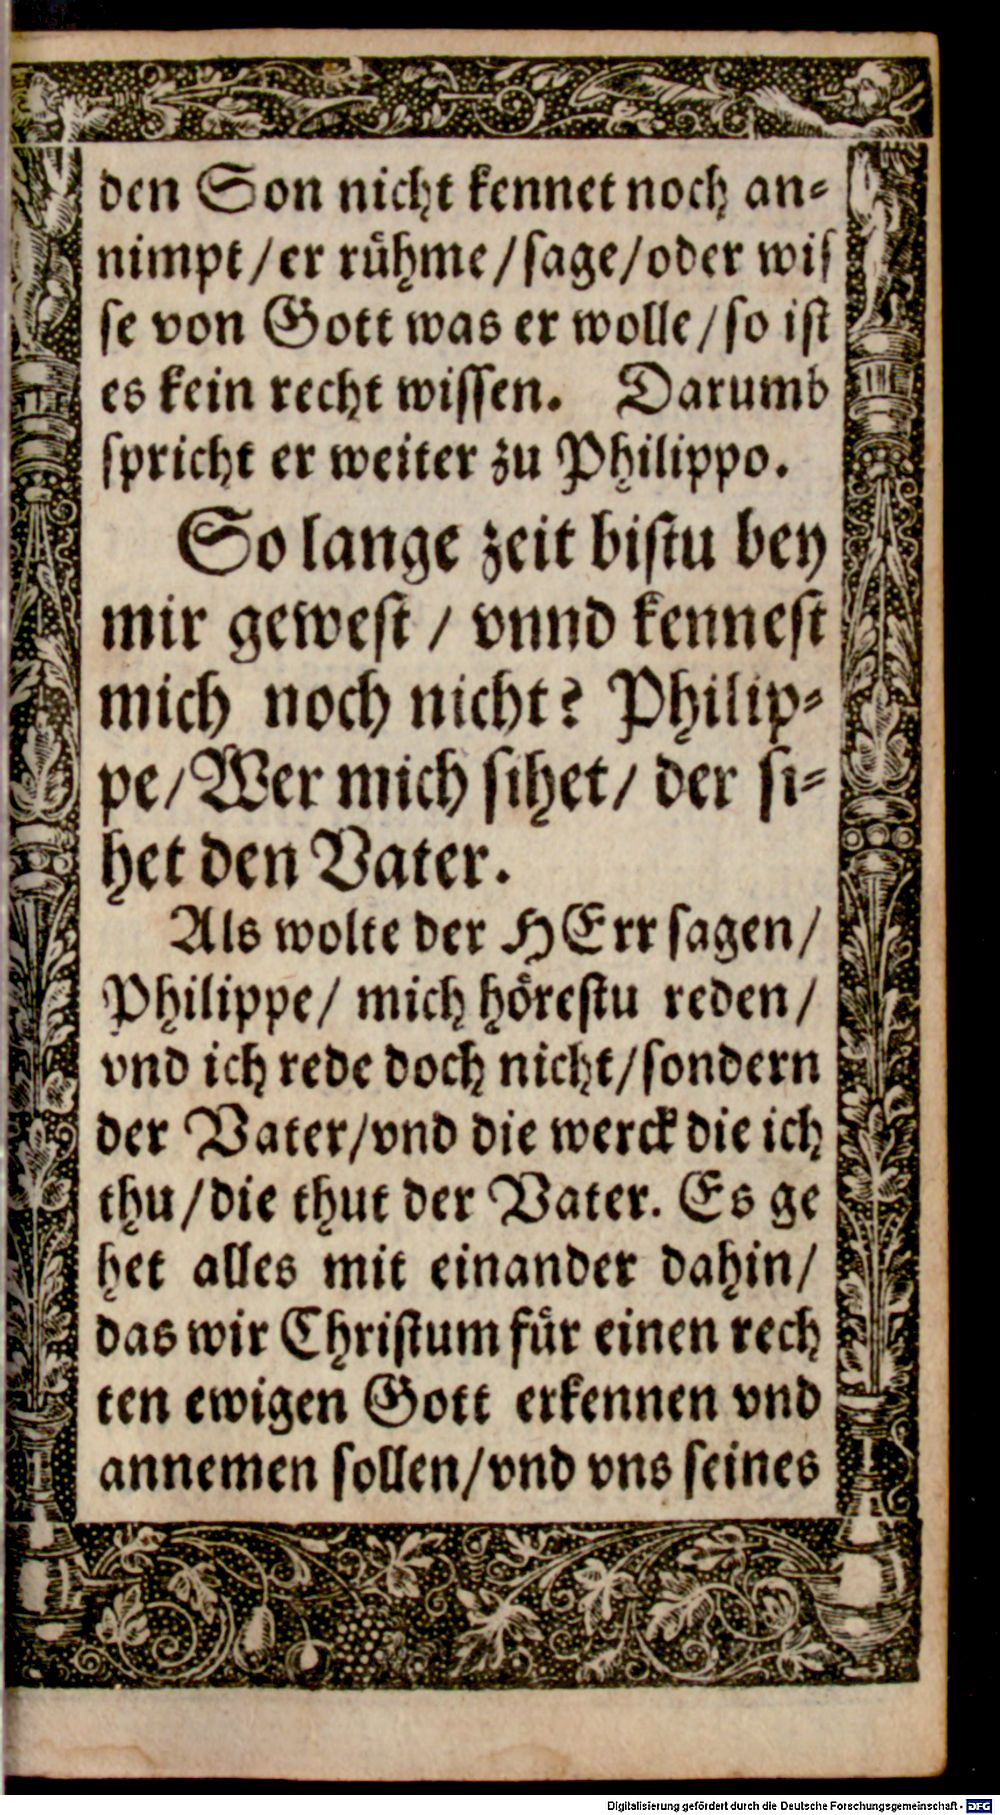 den Son nicht kennet noch an⸗
nimpt/er rühme/sage/oder wis
se von Gott was er wolle/so ist
es kein recht wissen. Darumb
spricht er weiter zu Philippo.
So lange zeit bistu bey
mir gewest / vnnd kennest
mich noch nicht? Philip⸗
pe/Wer mich sihet/ der si⸗
het den Vater.
Als wolte der HErr sagen/
Philippe/ mich hörestu reden/
vnd ich rede doch nicht/sondern
der Vater/vnd die werck die ich
thu/die thut der Vater. Es ge
het alles mit einander dahin/
das wir Christum für einen rech
ten ewigen Gott erkennen vnd
annemen sollen/vnd vns seines
Digitalisierung gefördert durch die Deutsche Forschungsgemeinschaft - DFG